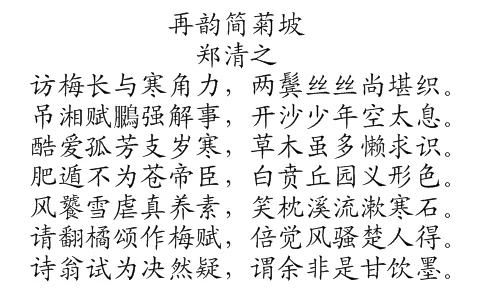 再韵简菊坡
郑清之
访梅长与寒角力，两鬓丝丝尚堪织。
吊湘赋鵩强解事，开沙少年空太息。
酷爱孤芳支岁寒，草木虽多懒求识。
肥遁不为苍帝臣，白贲丘园义形色。
风饕雪虐真养素，笑枕溪流漱寒石。
请翻橘颂作梅赋，倍觉风骚楚人得。
诗翁试为决然疑，谓余非是甘饮墨。